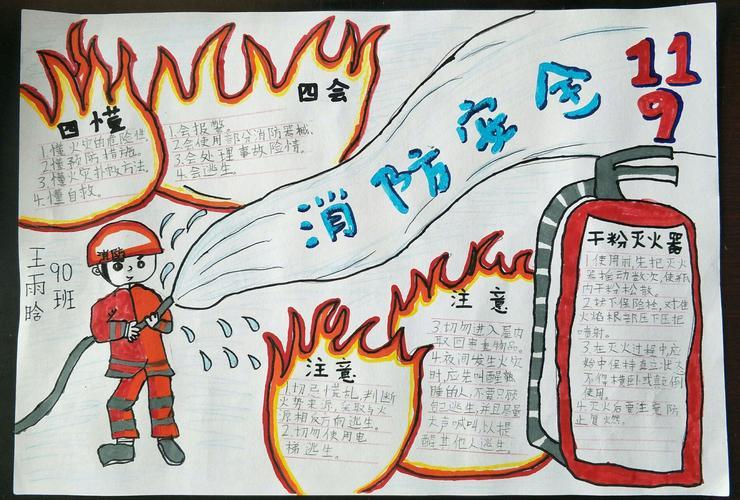 消防安全
11
9
四懂
1.懂火灾的危险性.
2.懂预防措施.
3.懂火灾扑救方法.
4.懂自救.
四会
1.会报警.
2.会使用部分消防器械.
3.会处理事故险情.
4.会逃生.
王雨晗
90班
消防
注意
1.切忌慌乱,判断
火势来源,采取与火
源相反方向逃生.
2.切勿使用电
梯逃生.
注意
3.切勿进入屋内
取回贵重物品.
4.夜间发生火灾
时,应先叫醒熟
睡的人,不要只顾
自己逃生,并且尽量
大声喊叫,以提
醒其他人逃生.
干粉灭火器
1.使用前,先把灭火
器摇动数次,使瓶
内干粉松散.
2.拔下保险栓,对准
火焰根部压下压把
喷射.
3.在灭火过程中,应
始中保持直立状态
不得横卧或颠倒
使用.
4.灭火后要注意防
止复燃.